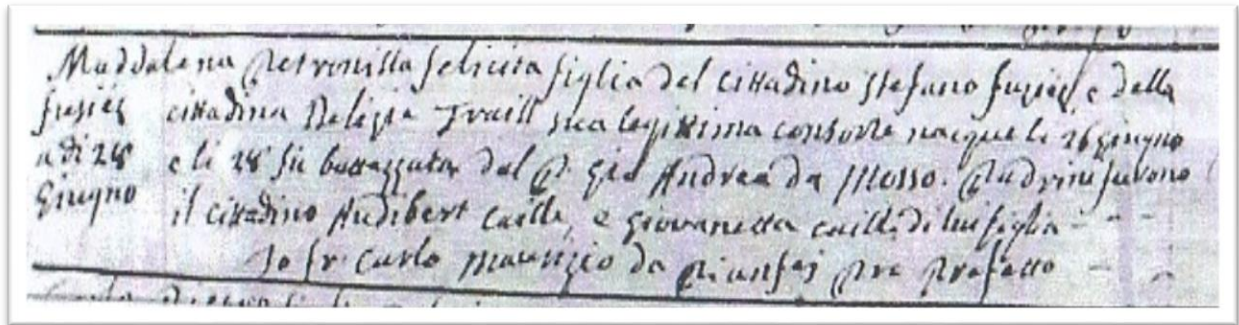 Maddalena Petronilla felicita figlia del cittadino stefano fusiez e della
fusiez cittadina Traill sua legittima consorte nacque li 26 giugno
a di 28 e li 28 fu battezzata dal P. Gio Andrea da Mosso. Padrini furono
Giugno il cittadino Audibert Caille, e giovanetta caille di lui figlia - -
Io fr. Carlo Maurizio da Pianfej Pre Prefetto -